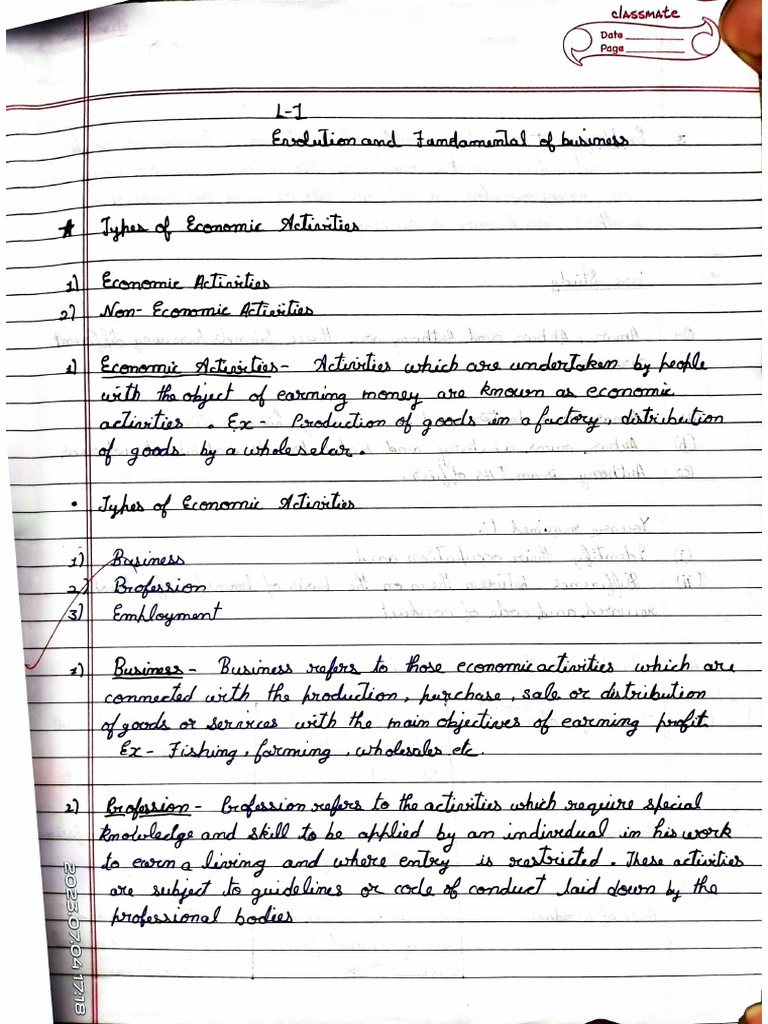 classmate
Date
Page
L-1
Evolution and Fundamental of business
* Types of Economic Activities
1) Economic Activities
2) Non-Economic Activities
1) Economic Activities - Activities which are undertaken by people
with the object of earning money are known as economic
activities. Ex - Production of goods in a factory, distribution
of goods by a wholeselar.
• Types of Economic Activities
1) Business
2) Profession
3) Employment
1) Business - Business refers to those economic activities which are
connected with the production, purchase, sale or distribution
of goods or services with the main objectives of earning profit.
Ex - Fishing, farming, wholesales etc.
2) Profession - Profession refers to the activities which require special
knowledge and skill to be applied by an individual in his work
to earn a living and where entry is restricted. These activities
are subject to guidelines or code of conduct laid down by the
professional bodies
2023.07.04 17:18